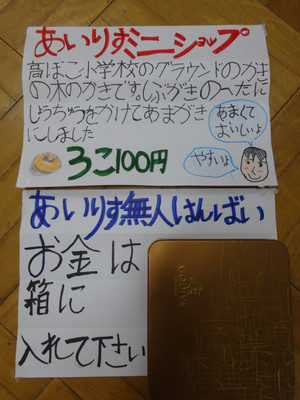 あいりすミニショップ
高ぼこ小学校のグラウンドのかき
の木のかきです。しぶがきのへたに
しょうちゅうをかけてあまがき
にしました
あまくて
おいしいよ
やすいよ
3こ100円
あいりす無人はんばい
お金は
箱に
入れて下さい
GODIVA